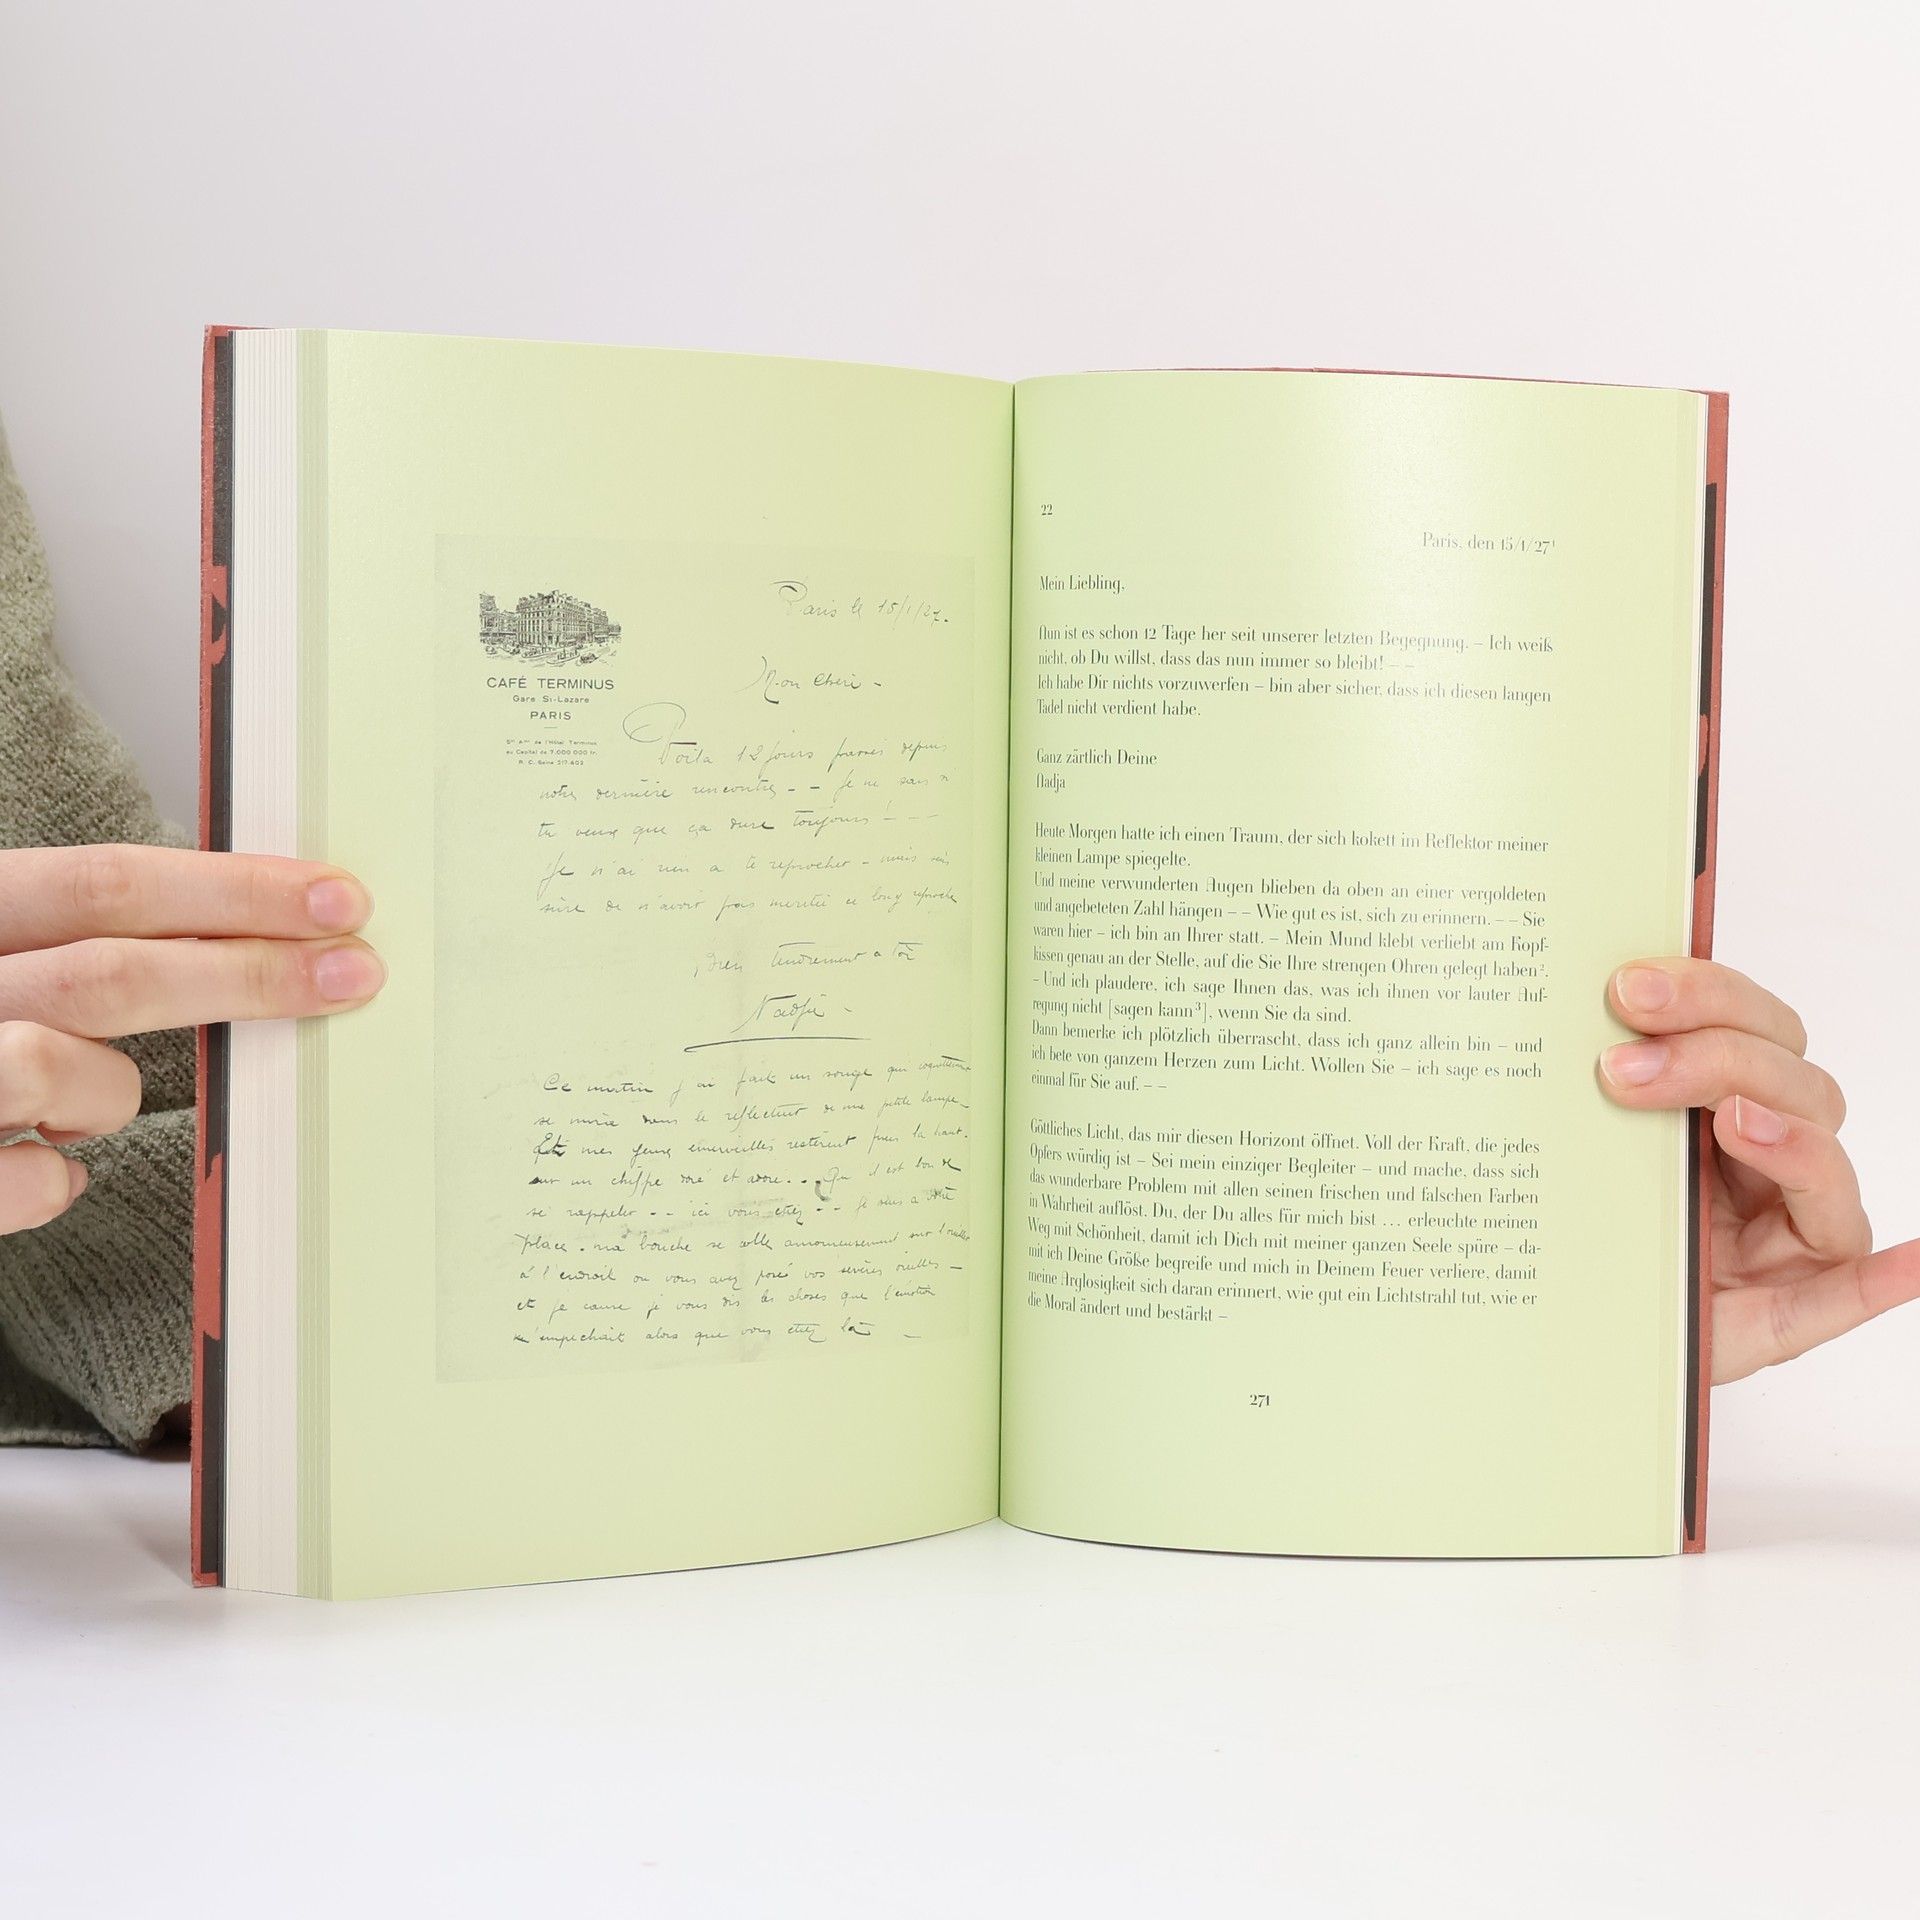 CAFÉ TERMINUS
Gare St-Lazare
PARIS
Sté Ame de l'Hôtel Terminus
au Capital de 7.000.000 fr.
R. C. Seine 217-602
Paris le 15/1/27.
Mon Cheri -
Voila 12 jours passés depuis
notre dernière rencontre - - Je ne sais si
tu veux que ça dure toujours ! - -
Je n'ai rien a te reprocher - mais suis
sûre de n'avoir pas merité ce long reproche
bien tendrement a toi
Nadja -
Ce matin j'ai fait un songe qui coquettement
se mire dans le reflecteur de ma petite lampe -
Et mes yeux emerveillés resterent la haut.
sur un chiffre doré et adoré . . Qu'il est bon de
se rappeler - - ici vous etiez - - je suis a votre
place - ma bouche se colle amoureusement sur l'oreiller
à l'endroit ou vous avez posé vos sevères oreilles -
et je cause je vous dis les choses que l'émotion
m'empechait alors que vous etiez là -
22
Paris, den 15/1/27¹
Mein Liebling,
Nun ist es schon 12 Tage her seit unserer letzten Begegnung. – Ich weiß
nicht, ob Du willst, dass das nun immer so bleibt! – –
Ich habe Dir nichts vorzuwerfen – bin aber sicher, dass ich diesen langen
Tadel nicht verdient habe.
Ganz zärtlich Deine
Nadja
Heute Morgen hatte ich einen Traum, der sich kokett im Reflektor meiner
kleinen Lampe spiegelte.
Und meine verwunderten Augen blieben da oben an einer vergoldeten
und angebeteten Zahl hängen – – Wie gut es ist, sich zu erinnern. – – Sie
waren hier – ich bin an Ihrer statt. – Mein Mund klebt verliebt am Kopf-
kissen genau an der Stelle, auf die Sie Ihre strengen Ohren gelegt haben².
– Und ich plaudere, ich sage Ihnen das, was ich ihnen vor lauter Auf-
regung nicht [sagen kann³], wenn Sie da sind.
Dann bemerke ich plötzlich überrascht, dass ich ganz allein bin – und
ich bete von ganzem Herzen zum Licht. Wollen Sie – ich sage es noch
einmal für Sie auf. – –
Göttliches Licht, das mir diesen Horizont öffnet. Voll der Kraft, die jedes
Opfers würdig ist – Sei mein einziger Begleiter – und mache, dass sich
das wunderbare Problem mit allen seinen frischen und falschen Farben
in Wahrheit auflöst. Du, der Du alles für mich bist … erleuchte meinen
Weg mit Schönheit, damit ich Dich mit meiner ganzen Seele spüre – da-
mit ich Deine Größe begreife und mich in Deinem Feuer verliere, damit
meine Arglosigkeit sich daran erinnert, wie gut ein Lichtstrahl tut, wie er
die Moral ändert und bestärkt –
271